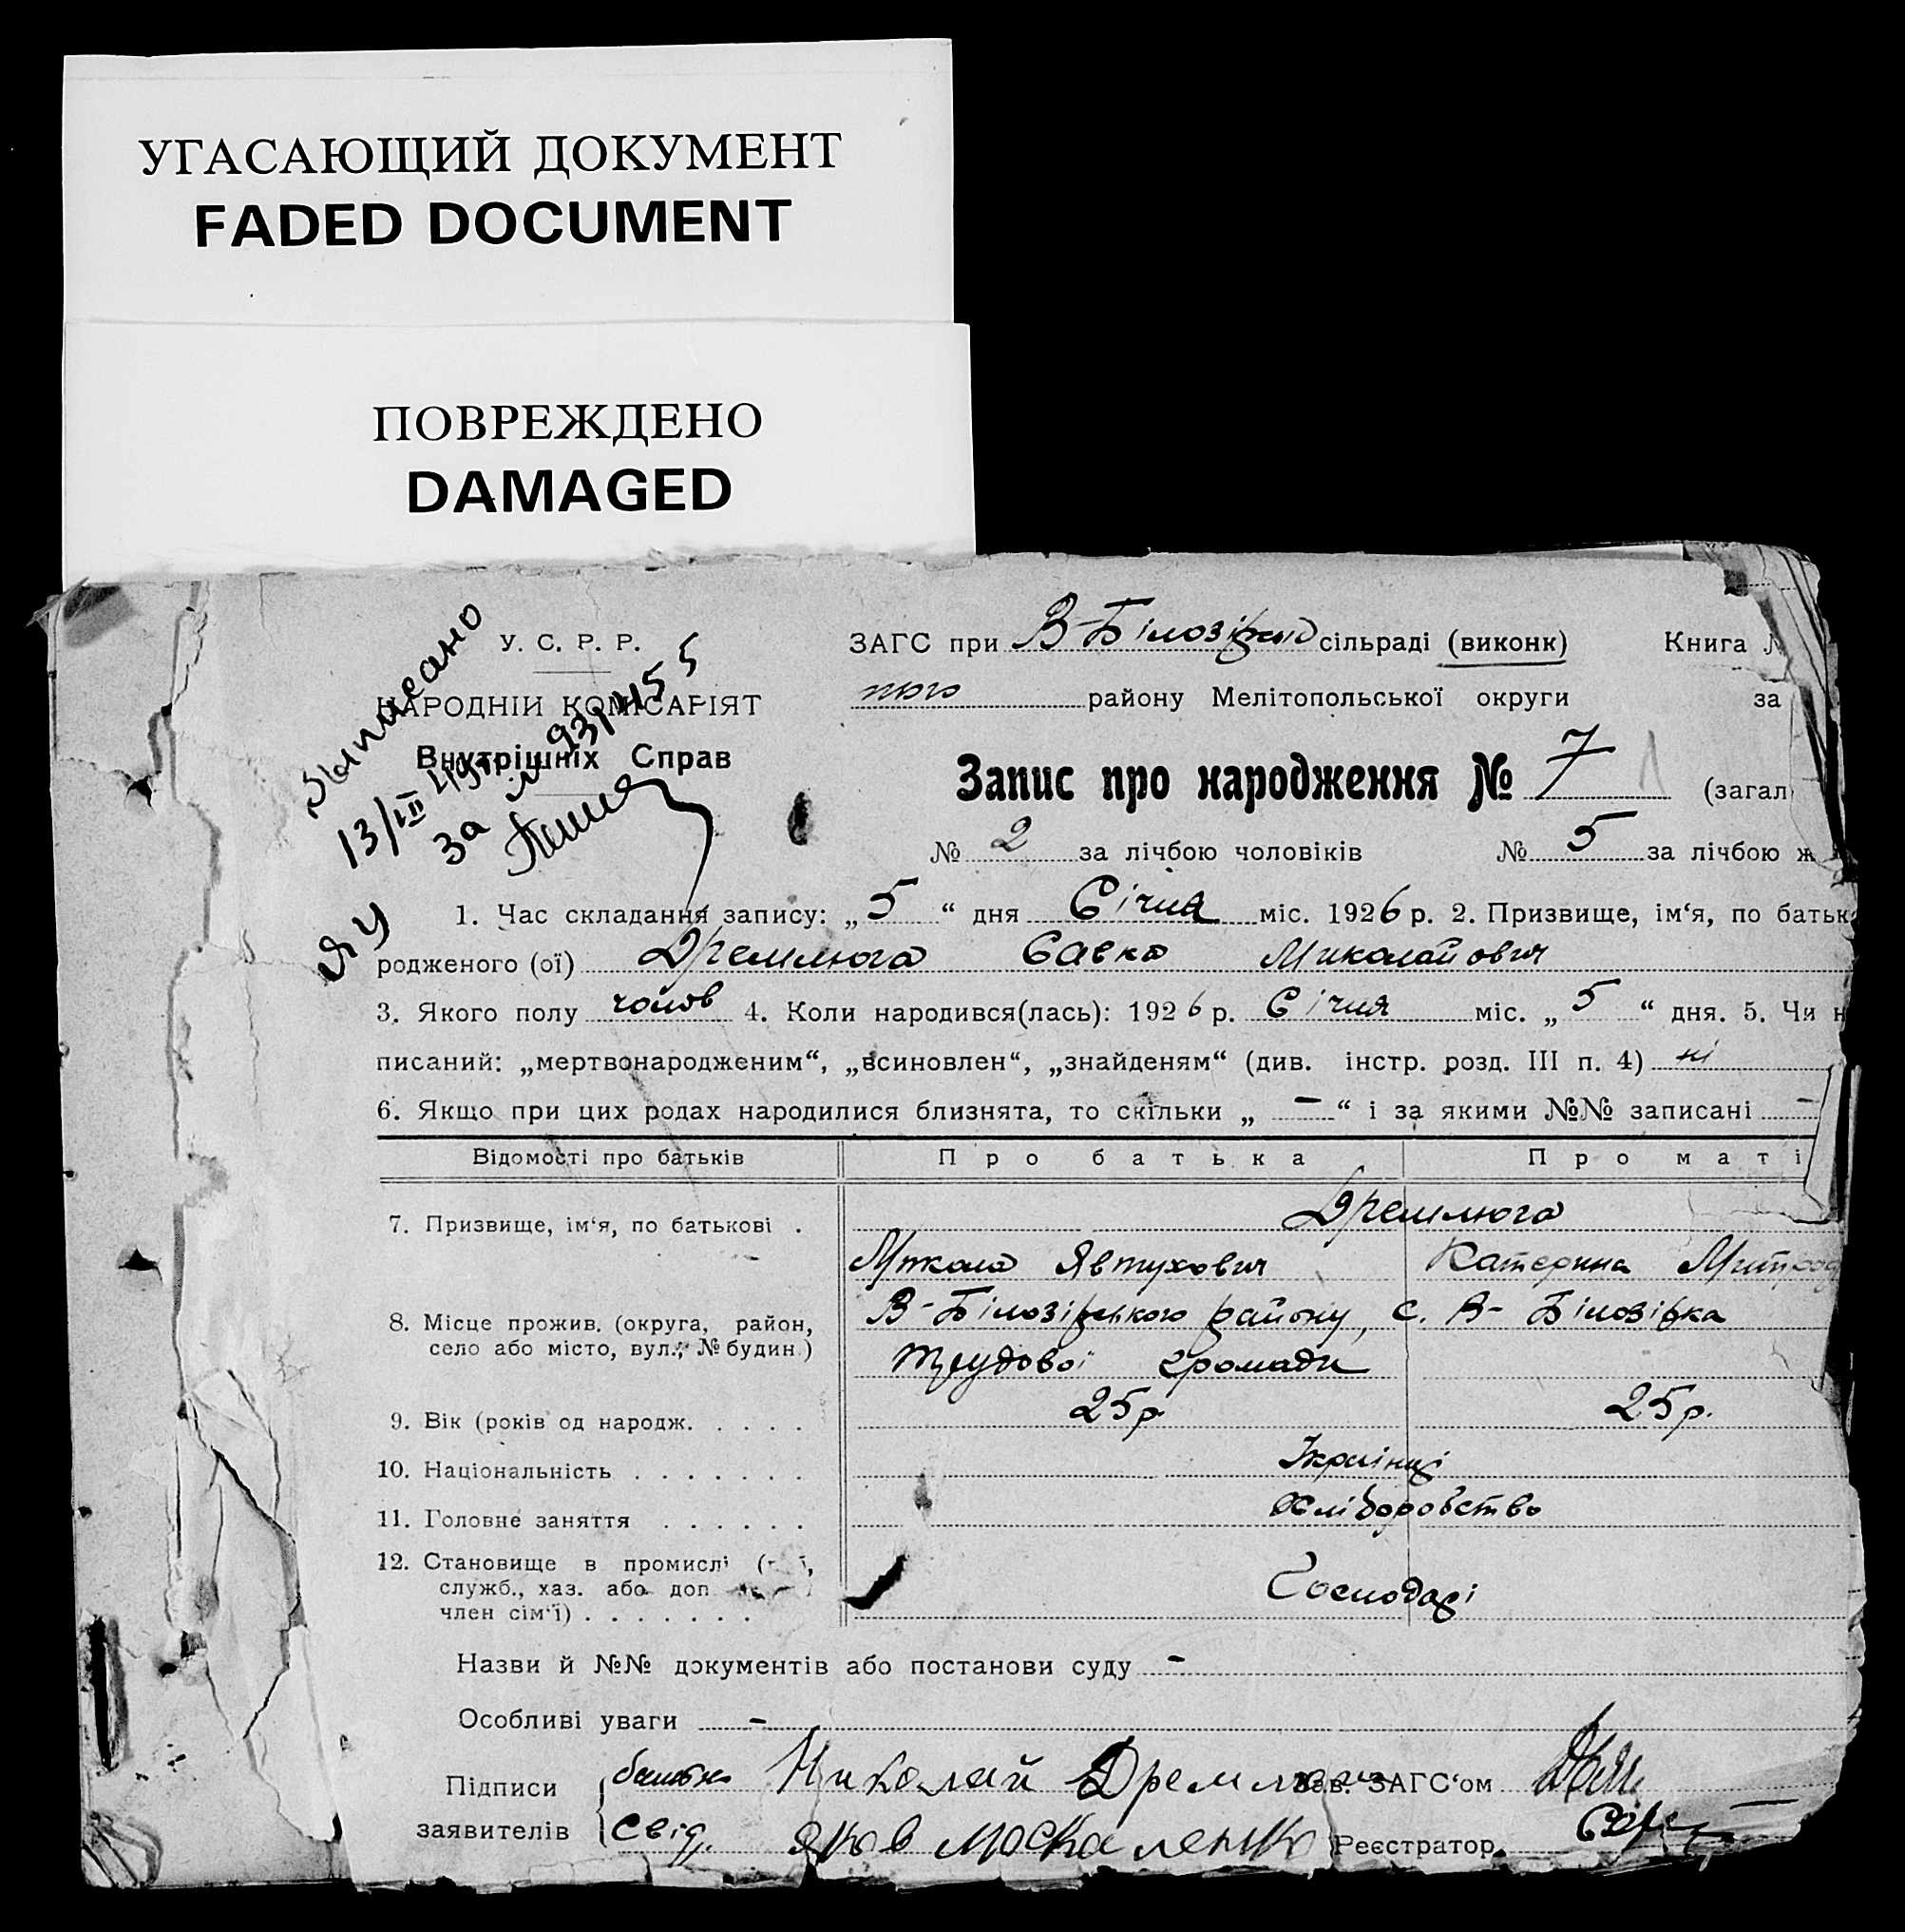 УГАСАЮЩИЙ ДОКУМЕНТ
FADED DOCUMENT
ПОВРЕЖДЕНО
DAMAGED
У. С. Р. Р.
НАРОДНІЙ КОМІСАРІЯТ
Внутрішніх Справ
13/III 49
за № 931455
ЗАГС при В-Білозірсь сільраді (виконк) Книга
кого району Мелітопольської округи за
Запис про народження № 7 1 (загал
№ 2 за лічбою чоловіків № 5 за лічбою ж
1. Час складання запису: „5“ дня Січня міс. 1926 р. 2. Призвище, ім‘я, по батьк
родженого (ої) Дремлюга Савка Миколайович
3. Якого полу чолов 4. Коли народився(лась): 1926 р. Січня міс. „5“ дня. 5. Чи н
писаний: „мертвонародженим“, „всиновлен“, „знайденям“ (див. інстр. розд. III п. 4) ні
6. Якщо при цих родах народилися близнята, то скільки „ – “ і за якими №№ записані –
Відомості про батьків Про батька Про маті
7. Призвище, ім‘я, по батькові . Дремлюга
Микола Явтухович Катерина
8. Місце прожив. (округа, район, В-Білозірського району, с. В-Білозірка
село або місто, вул., № будин.) трудової громади
9. Вік (років од народж. . . . . 25 р. 25 р.
10. Національність . . . . . . . Українці
11. Головне заняття . . . . . . Хліборобство
12. Становище в промислі
служб., хаз. або доп Господарі
член сім‘ї) . . . . . . .
Назви й №№ документів або постанови суду –
Особливі уваги –
Підписи батько Николай Дремлюга Зав. ЗАГС‘ом
заявителів Свід. Яков Москаленко Реєстратор